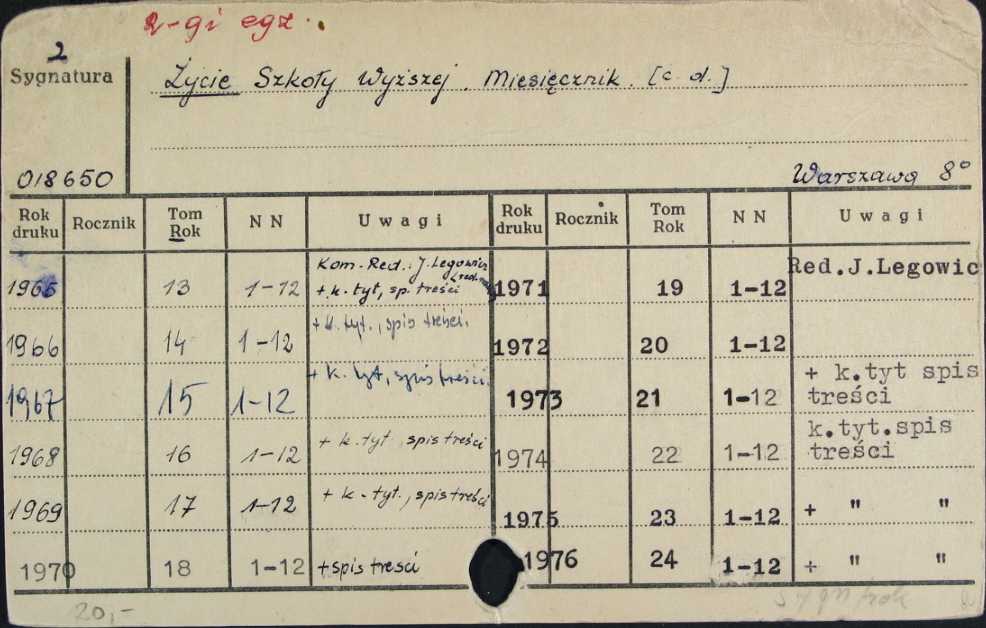 2-gi egz.
2
Sygnatura
Życie Szkoły Wyższej. Miesięcznik. [c. d.]
018650
Warszawa 8°
Rok druku Rocznik Tom Rok NN Uwagi Rok druku Rocznik Tom Rok NN Uwagi
Kom. Red.: J. Legowicz
1965 13 1-12 + k. tyt, sp. treści 1971 19 1-12 Red.J.Legowic
1966 14 1-12 + k. tyt., spis treści. 1972 20 1-12
1967 15 1-12 + k. tyt, spis treści. 1973 21 1-12 + k.tyt spis treści
1968 16 1-12 + k. tyt, spis treści 1974 22 1-12 k.tyt.spis treści
1969 17 1-12 + k. tyt., spis treści 1975 23 1-12 + " "
1970 18 1-12 + spis treści 1976 24 1-12 + " "
20,-